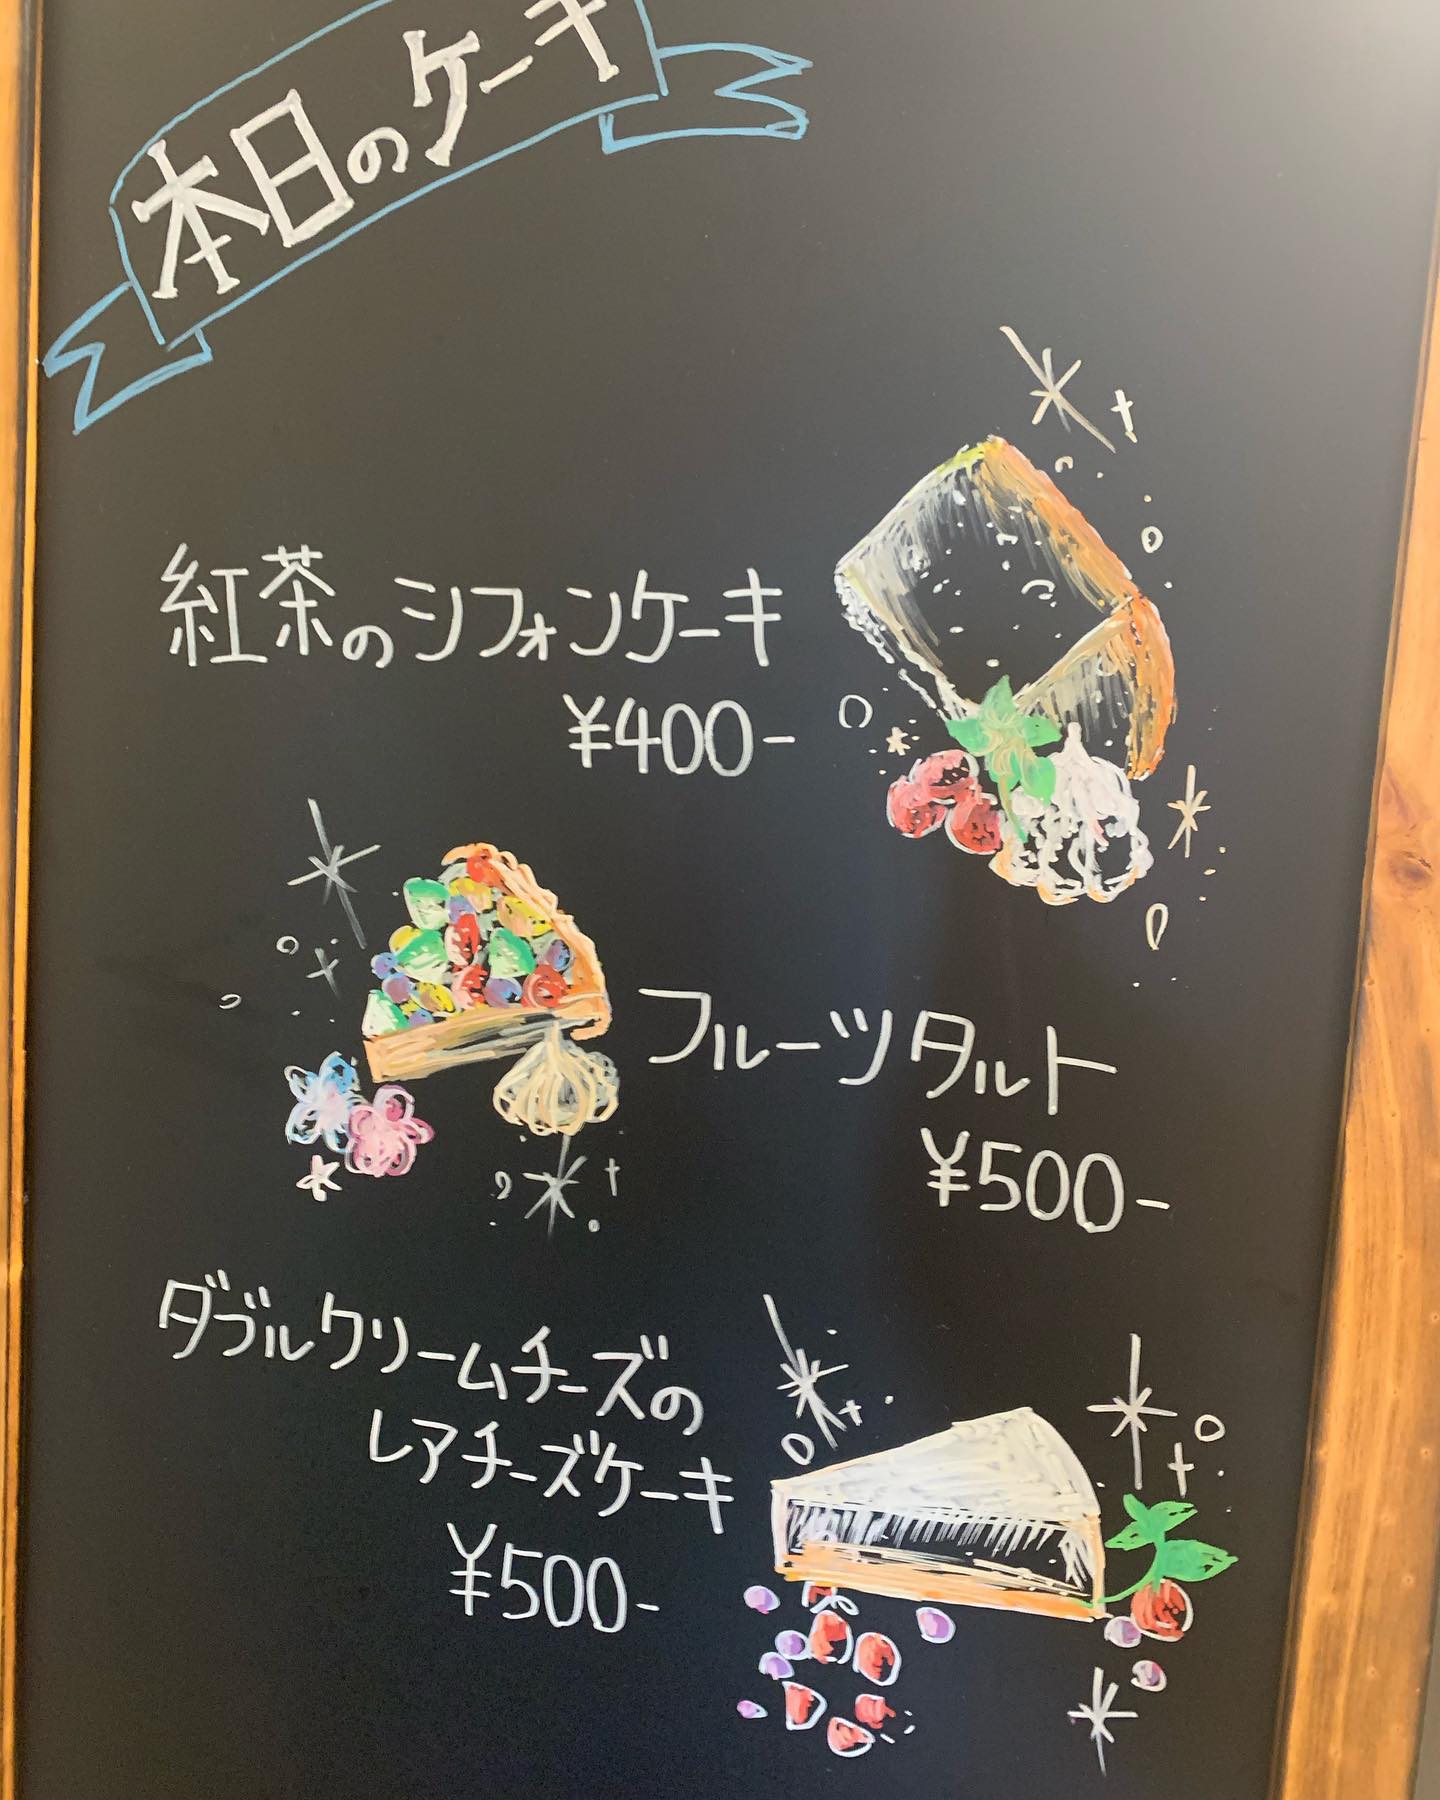 本日のケーキ
紅茶のシフォンケーキ
¥400-
フルーツタルト
¥500-
ダブルクリームチーズの
レアチーズケーキ
¥500-